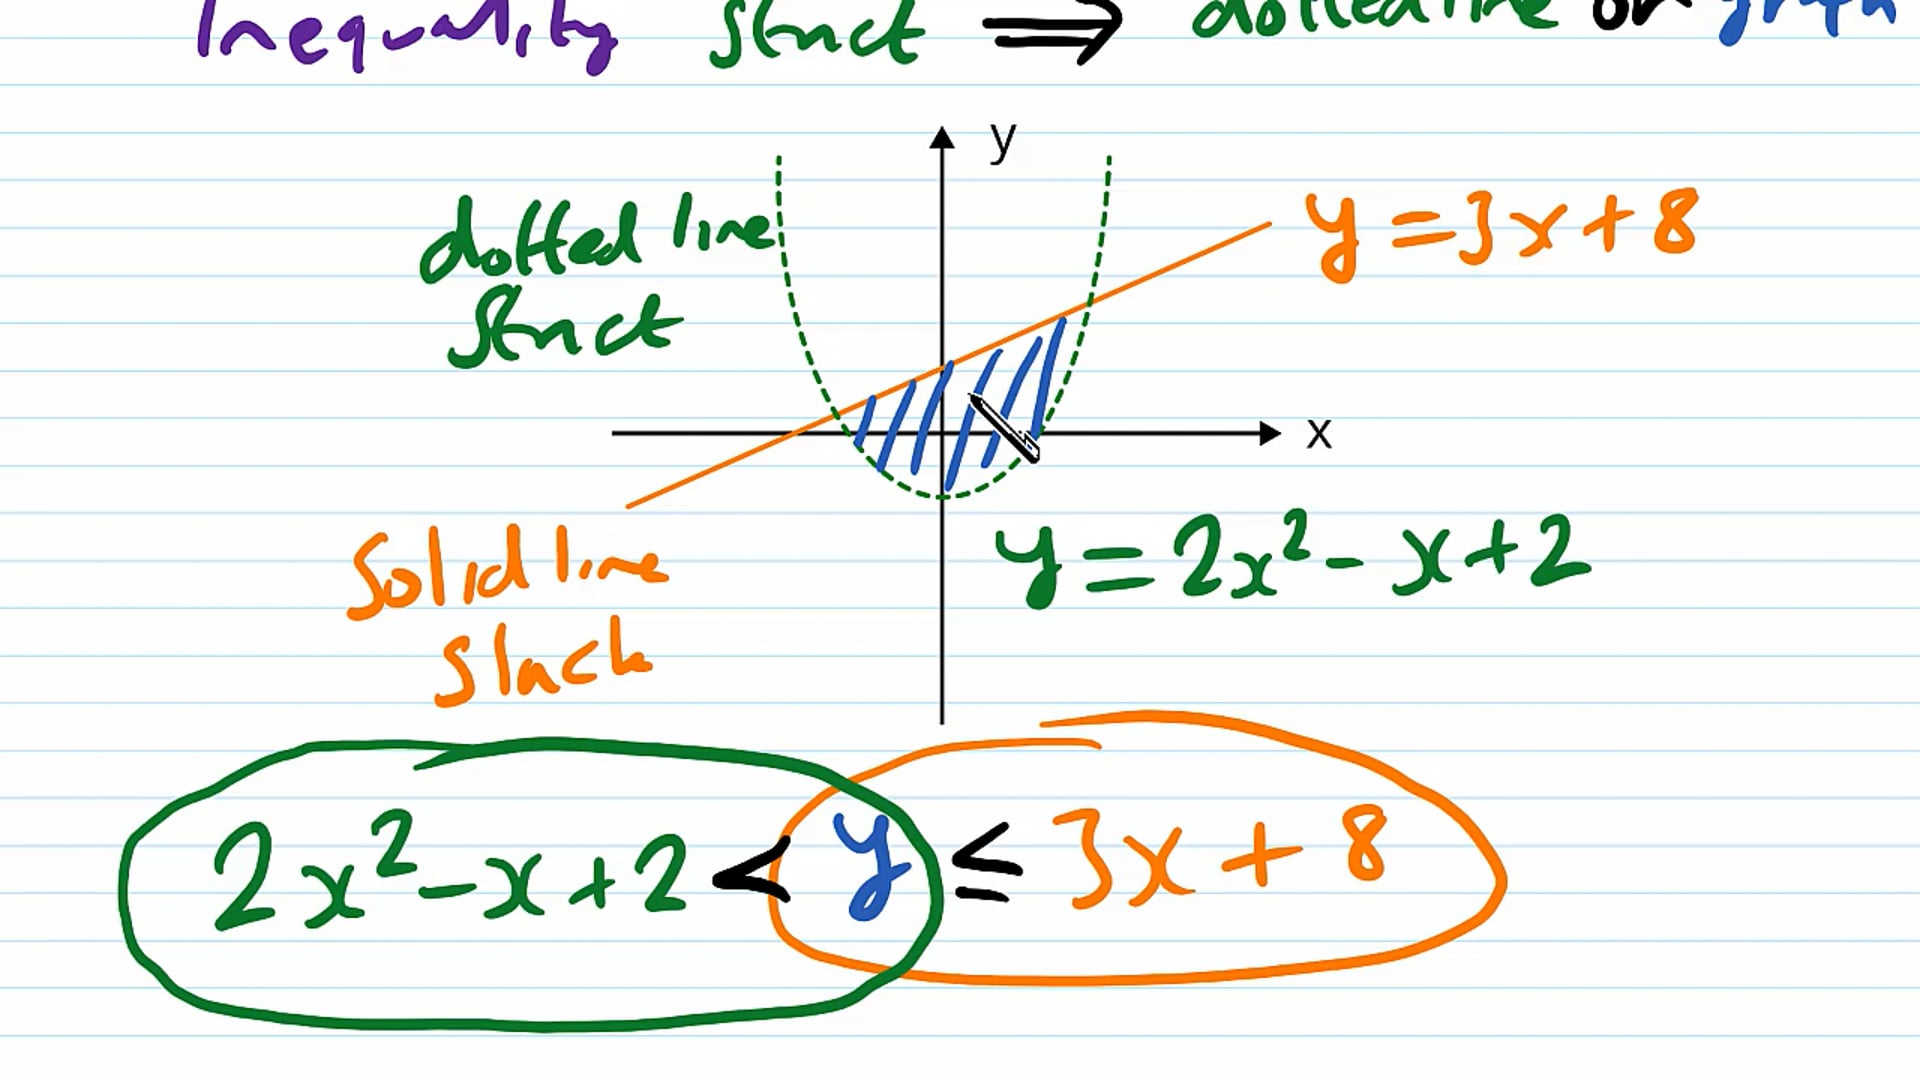 Inequality strict ⇒ dotted line on graph
y
dotted line
strict
y = 3x + 8
x
Solid line
slack
y = 2x² - x + 2
2x² - x + 2 < y ≤ 3x + 8